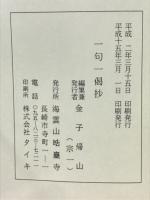 平成 二年三月十五日 印刷発行
平成十五年三月 一日 印刷発行
一句一偈抄
編集兼
発行者 金子帰山
(宗一)
発行所 海雲山皓臺寺
長崎市寺町一ー一
電話 〇九五ー八二三ー七二一一
印刷所 株式会社タイキ